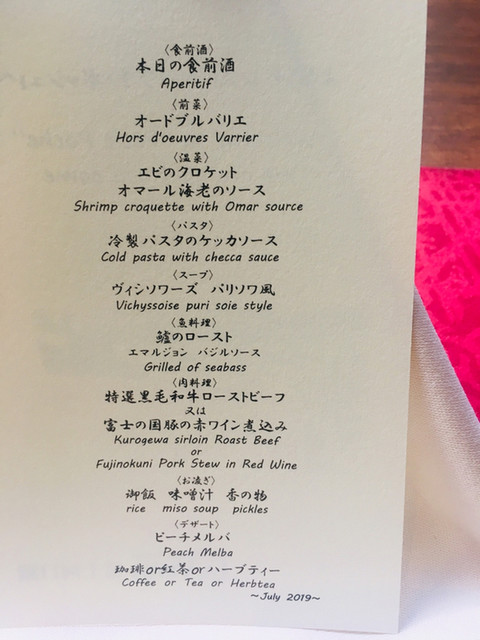 〈食前酒〉
本日の食前酒
Aperitif
〈前菜〉
オードブルバリエ
Hors d'oeuvres Varrier
〈温菜〉
エビのクロケット
オマール海老のソース
Shrimp croquette with Omar source
〈パスタ〉
冷製パスタのケッカソース
Cold pasta with checca sauce
〈スープ〉
ヴィシソワーズ　パリソワ風
Vichyssoise puri soie style
〈魚料理〉
鱸のロースト
エマルジョン　バジルソース
Grilled of seabass
〈肉料理〉
特選黒毛和牛ローストビーフ
又は
富士の国豚の赤ワイン煮込み
Kurogewa sirloin Roast Beef
or
Fujinokuni Pork Stew in Red Wine
〈お凌ぎ〉
御飯　味噌汁　香の物
rice　miso soup　pickles
〈デザート〉
ピーチメルバ
Peach Melba
珈琲or紅茶orハーブティー
Coffee or Tea or Herbtea
～July 2019～